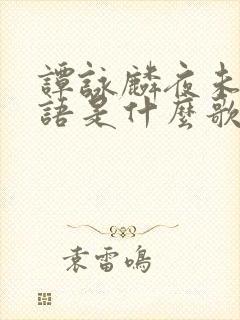 譚詠麟夜未
語是什麼歌
袁雷鳴